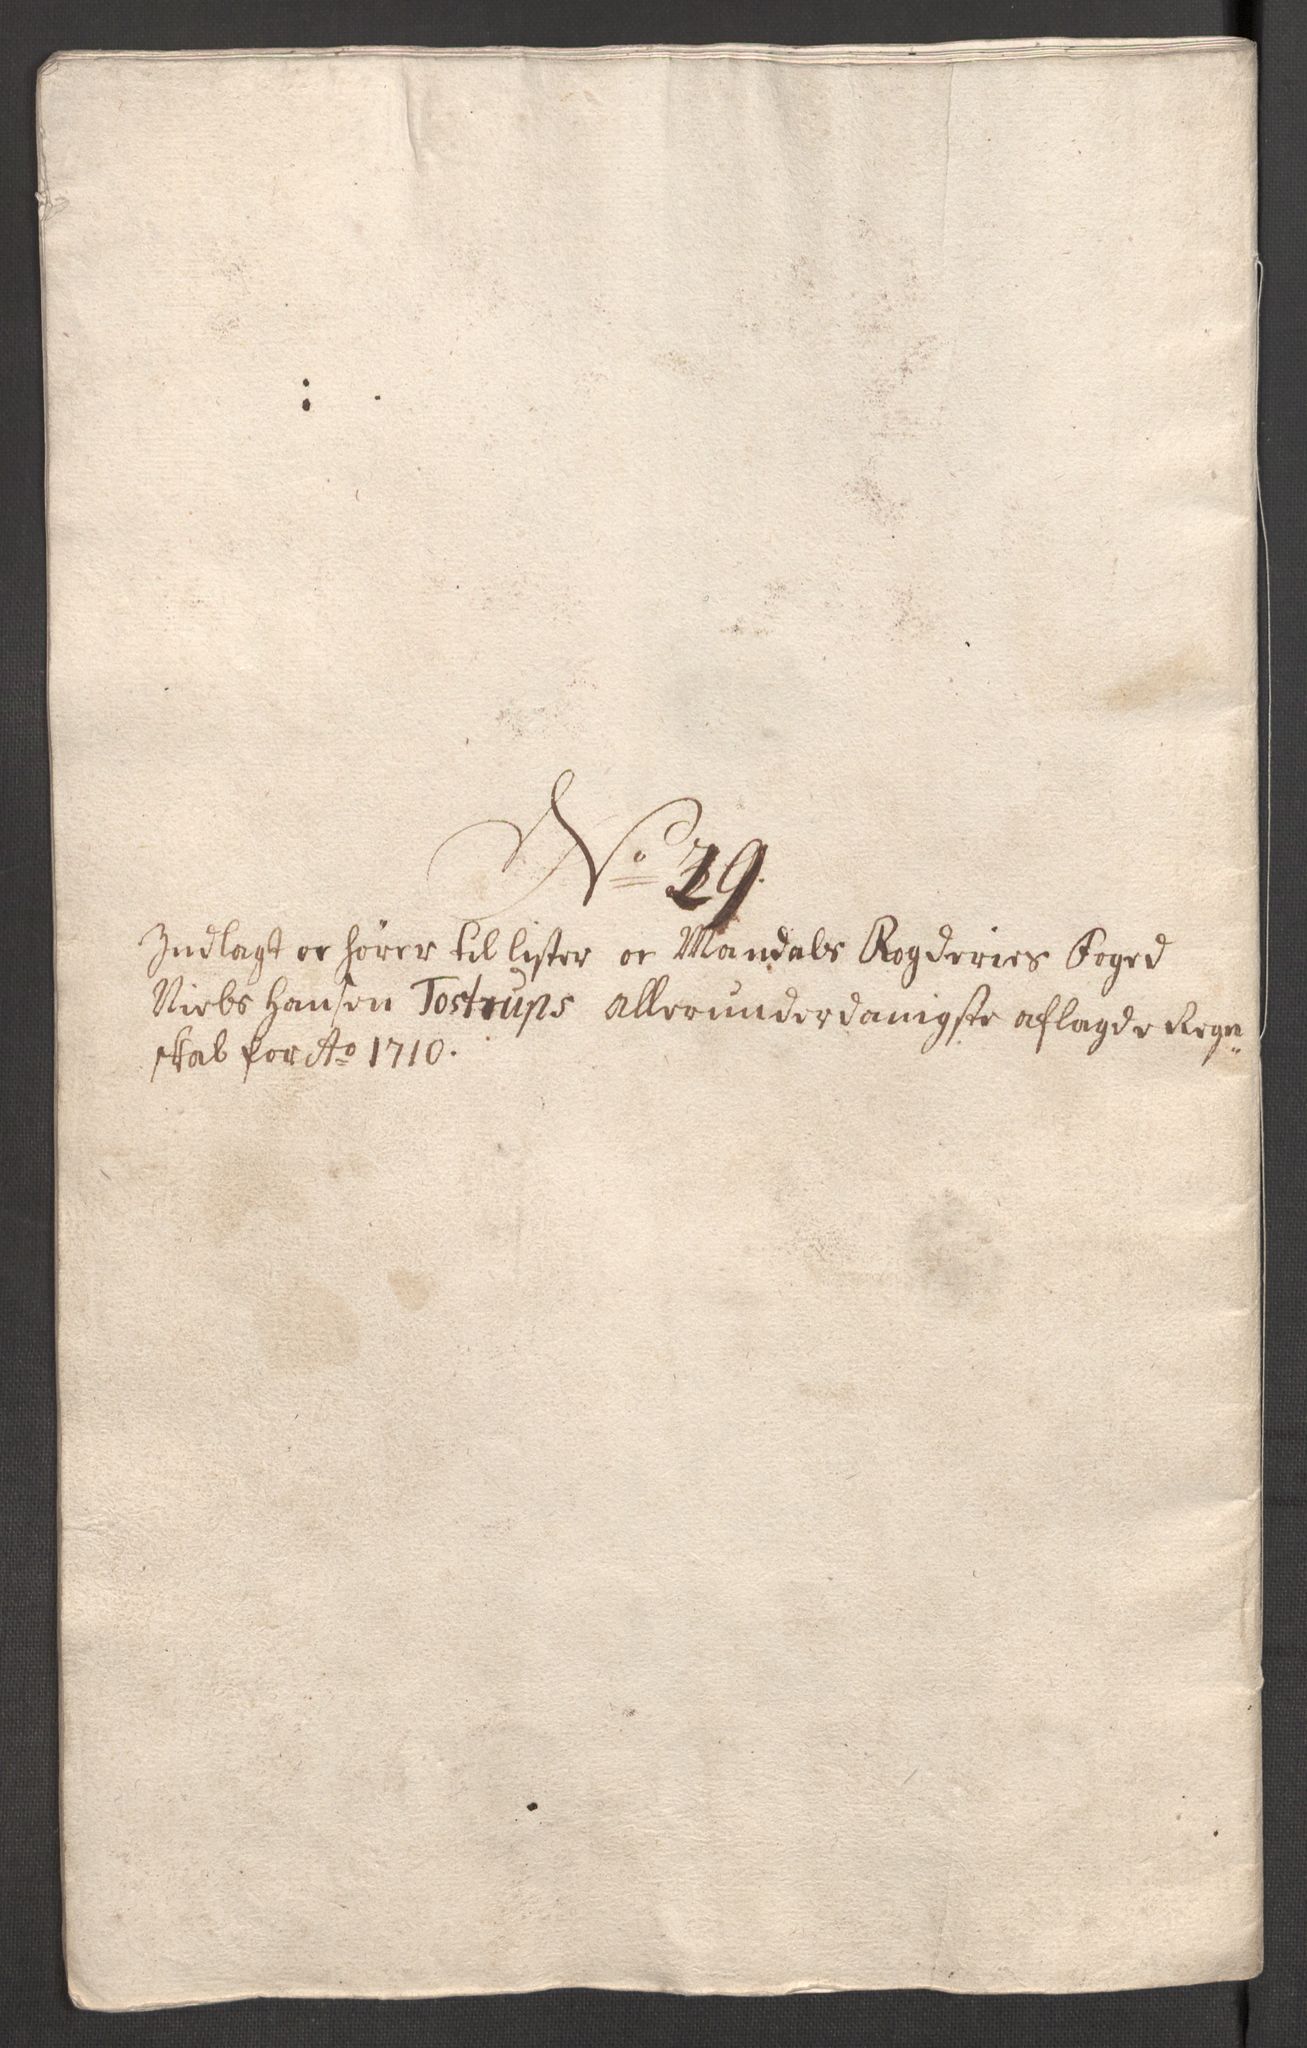 No 29.
Indlagt oc hører til lister oc Mandahls Fogderies Foged
Niels Hansen Tostrups allerunderdanigste aflagde Regn„
skab for Ao 1710.